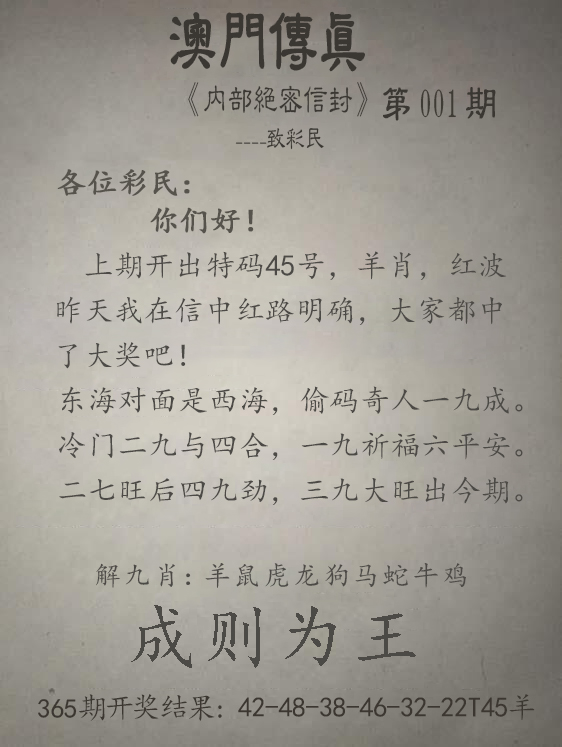 澳門傳真
《内部絕密信封》第001期
----致彩民
各位彩民：
你们好！
上期开出特码45号，羊肖，红波
昨天我在信中红路明确，大家都中
了大奖吧！
东海对面是西海，偷码奇人一九成。
冷门二九与四合，一九祈福六平安。
二七旺后四九劲，三九大旺出今期。
解九肖：羊鼠虎龙狗马蛇牛鸡
成则为王
365期开奖结果：42-48-38-46-32-22T45羊